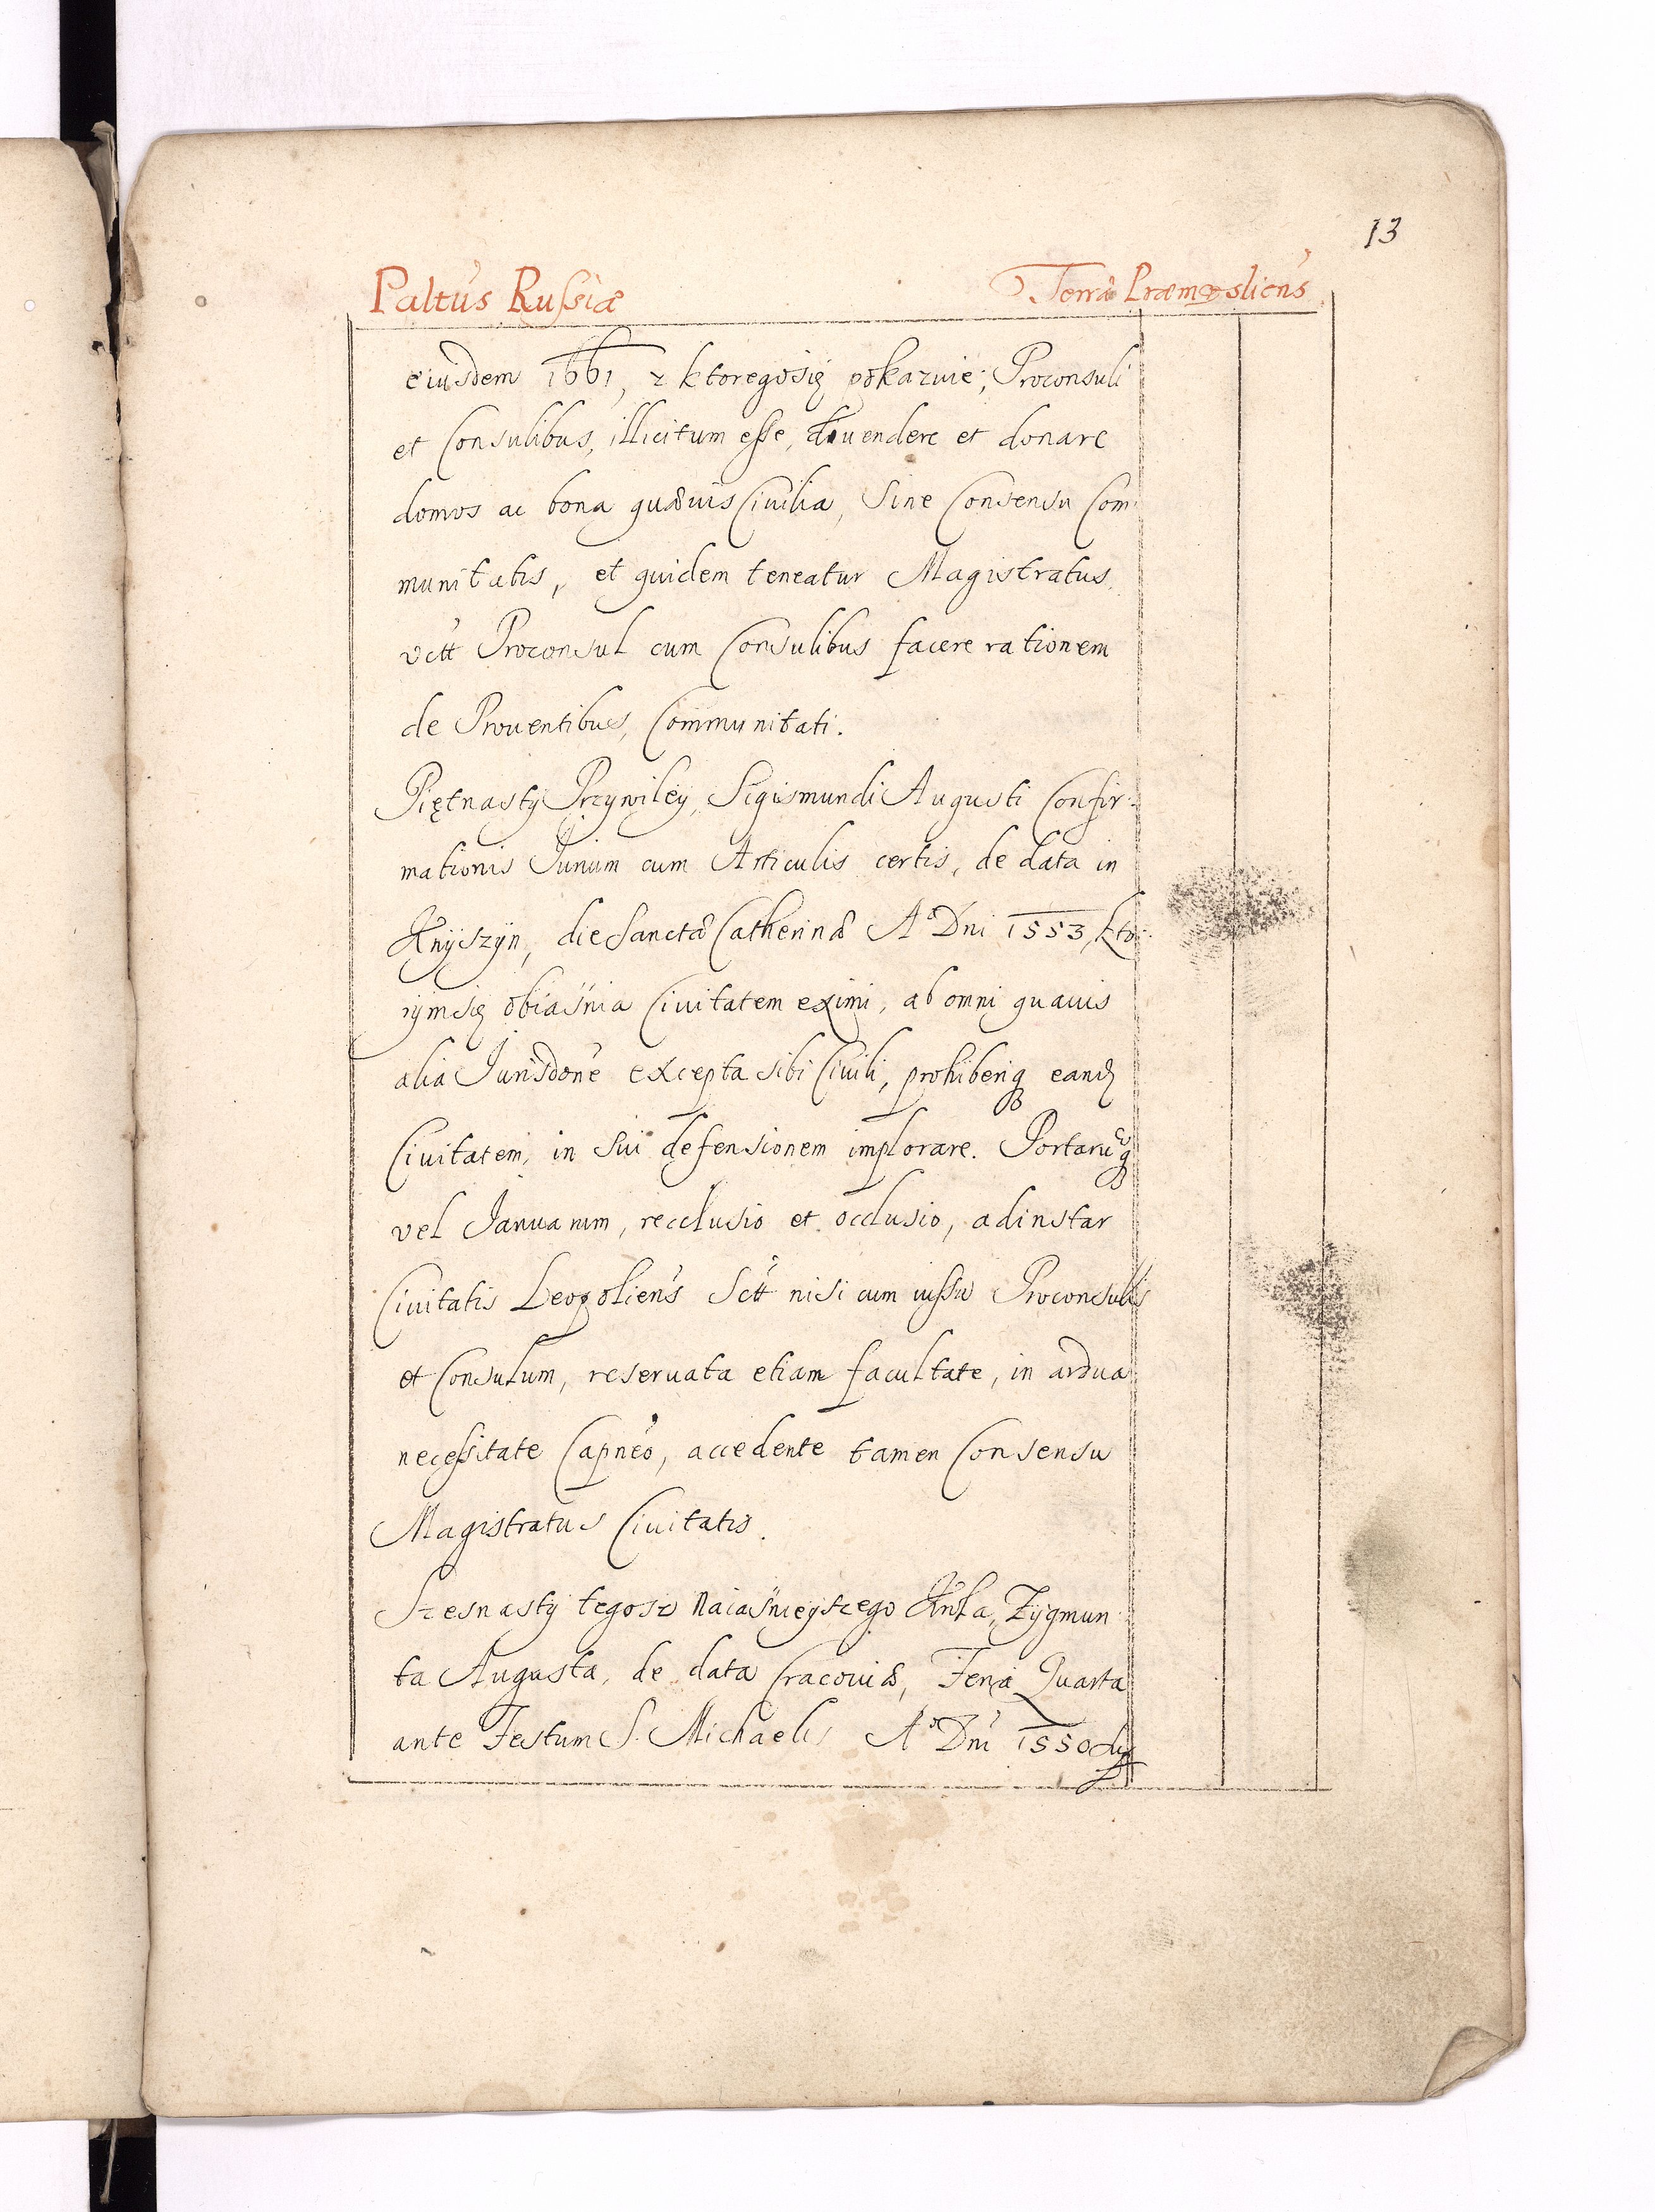 13
Paltus Russiæ Terræ Præmysliens
eiusdem 1661, z ktoregosię pokazuie; Proconsuli
et Consulibus, illicitum esse, diuendere et donare
domos ac bona quæuis Ciuilia, Sine Consensu Com
munitatis, et quidem teneatur Magistratus
vctt Proconsul cum Consulibus facere rationem
de Prouentibus, Communitati.
Piętnasty Przywiley, Sigismundi Augusti Confir
mationis Jurium cum Articulis certis, de data in
Knyszyn, die Sanctæ Catherinæ Aº Dni 1553, kto
rymsię obiaśnia Ciuitatem eximi, ab omni quauis
alia Jurisdone excepta sibi Ciuili, prohiberiq eandem
Ciuitatem, in sui defensionem implorare. Portaruq
vel Januarum, recclusio et occlusio, adinstar
Ciuitatis Leopoliens Sctt nisi cum iussu Proconsulis
et Consulum, reseruata etiam facultate, in ardua
necessitate Capneo, accedente tamen Consensu
Magistratus Ciuitatis.
Szesnasty tegosz Naiaśnieyszego Krla, Zygmun
ta Augusta, de data Cracouiæ, Feria Quarta
ante Festum S. Michaelis Aº Dni 1550